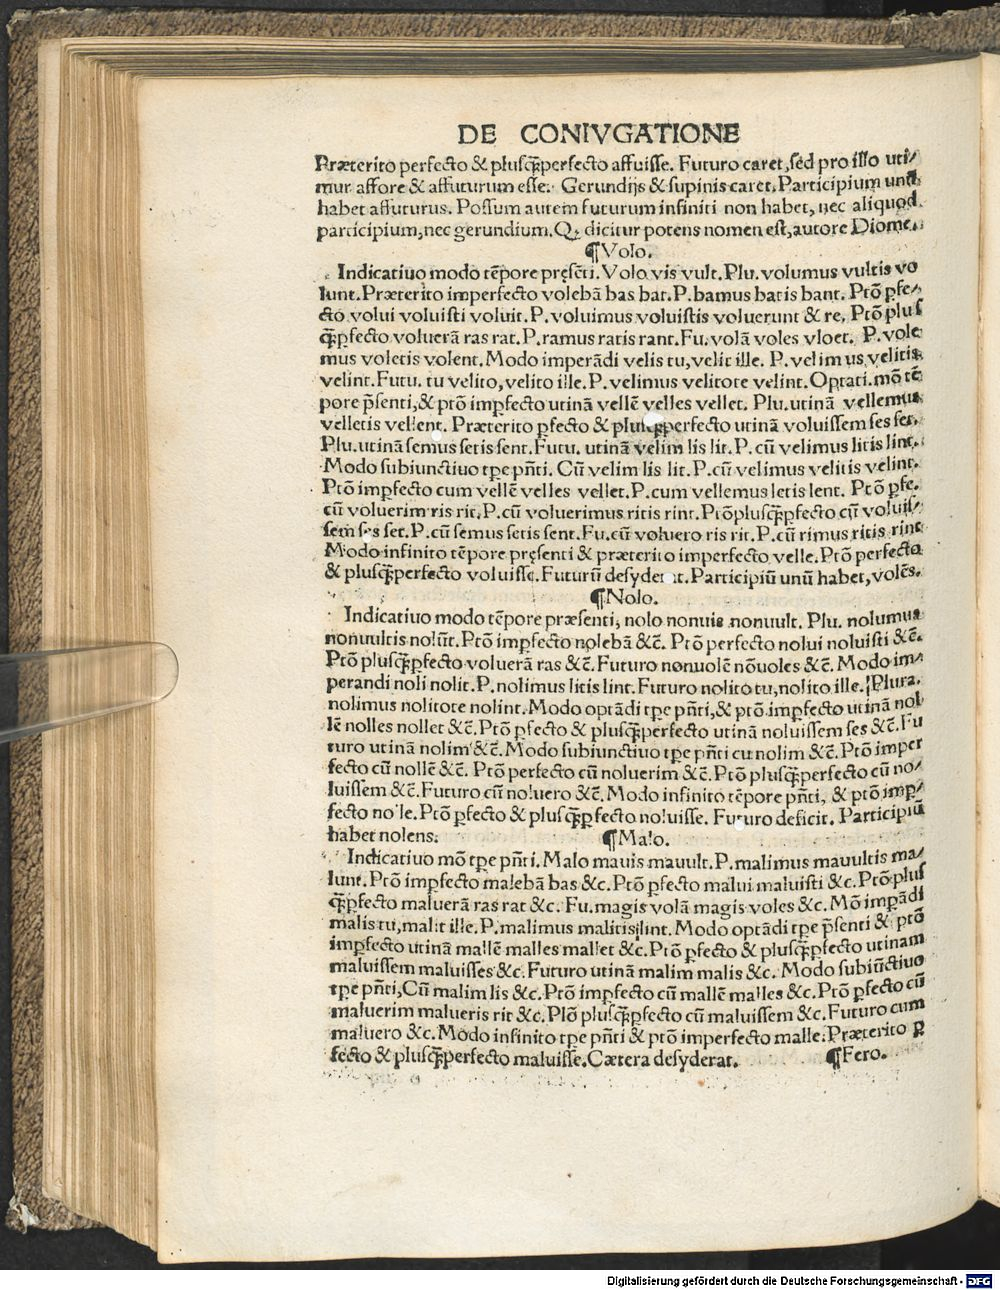 DE CONIVGATIONE
Præterito perfecto & plusq̃perfecto affuisse. Futuro caret, sed pro illo uti/
mur affore & affuturum esse. Gerundijs & supinis caret. Participium unũ
habet affuturus. Possum autem futurum infiniti non habet, nec aliquod
participium, nec gerundium. Q, dicitur potens nomen est, autore Diome.
¶Volo.
Indicatiuo modo tẽpore pręsẽti. Volo vis vult. Plu. volumus vultis vo
lunt. Præterito imperfecto volebã bas bat. P. bamus batis bant. Ptõ pfe/
cto volui voluisti voluit. P. voluimus voluistis voluerunt & re, Ptõ plus
q̃pfecto voluerã ras rat. P. ramus ratis rant. Fu. volã voles vloet. P. vole
mus voletis volent. Modo imperãdi velis tu, velit ille. P. velimus velitis
velint. Futu. tu velito, velito ille. P. velimus velitote velint. Optati. mõ tẽ
pore p̃senti, & ptõ imp̱fecto utinã vellẽ velles vellet. Plu. utinã vellemus
velletis vellent. Præterito p̱fecto & plusq̃perfecto utinã voluissem ses set.
Plu. utinã semus setis sent. Futu. utinã velim lis lit. P. cũ velimus litis lint.
Modo subiunctiuo tp̱e pñti. Cũ velim lis lit. P. cũ velimus velitis velint.
Ptõ imp̱fecto cum vellẽ velles vellet. P. cum vellemus letis lent. Ptõ p̱fe.
cũ voluerim ris rit. P. cũ voluerimus ritis rint. Ptõ plusq̃p̱fecto cũ voluis/
sem ses set. P. cũ semus setis sent. Fu. cũ voluero ris rit. P. cũ rimus ritis rint
Modo infinito tẽpore pręsenti & præterito imperfecto velle. Ptõ perfecto
& plusq̃perfecto voluisse. Futurũ desyderat. Participiũ unũ habet, volẽs.
¶Nolo.
Indicatiuo modo tẽpore præsenti, nolo nonuis nonuult. Plu. nolumus
nonuultis nolũt. Ptõ imp̱fecto nolebã &c̃. Ptõ perfecto nolui noluisti &c̃.
Ptõ plusq̃p̱fecto voluerã ras &c̃. Futuro nonuolẽ nõuoles &c̃. Modo im/
perandi noli nolit. P. nolimus litis lint. Futuro nolito tu, nolito ille. Plura.
nolimus nolitote nolint. Modo optãdi tp̱e pñti, & ptõ imp̱fecto utinã nol
lẽ nolles nollet &c̃. Ptõ p̱fecto & plusq̃p̱fecto utinã noluissem ses &c̃. Fu
turo utinã nolim &c̃. Modo subiunctiuo tp̱e pñti cu nolim &c̃. Ptõ imper
fecto cũ nollẽ &c̃. Ptõ perfecto cũ noluerim &c̃. Ptõ plusq̃perfecto cũ no/
luissem &c̃. Futuro cũ noluero &c̃. Modo infinito tẽpore pñti, & ptõ imp̱/
fecto nolle. Ptõ p̱fecto & plusq̃p̱fecto noluisse. Futuro deficit. Participiũ
habet nolens. ¶Malo.
Indicatiuo mõ tp̱e pñti. Malo mauis mauult. P. malimus mauultis ma/
lunt. Ptõ imp̱fecto malebã bas &c. Ptõ p̱fecto malui maluisti &c. Ptõ plus
q̃p̱fecto maluerã ras rat &c. Fu. magis volã magis voles &c. Mõ imp̱ãdi
malis tu, malit ille. P. malimus malitis lint. Modo optãdi tp̱e p̃senti & ptõ
imp̱fecto utinã mallẽ malles mallet &c. Ptõ p̱fecto & plusq̃p̱fecto utinam
maluissem maluisses &c. Futuro utinã malim malis &c. Modo subiũctiuo
tp̱e pñti, Cũ malim lis &c. Ptõ imp̱fecto cũ mallẽ malles &c. Ptõ p̱fecto cũ
maluerim malueris rit &c. Plõ plusq̃p̱fecto cũ maluissem &c. Futuro cum
maluero &c. Modo infinito tp̱e pñti & ptõ imperfecto malle. Præterito p̱
fecto & plusq̃perfecto maluisse. Cætera desyderat. ¶Fero.
Digitalisierung gefördert durch die Deutsche Forschungsgemeinschaft - DFG